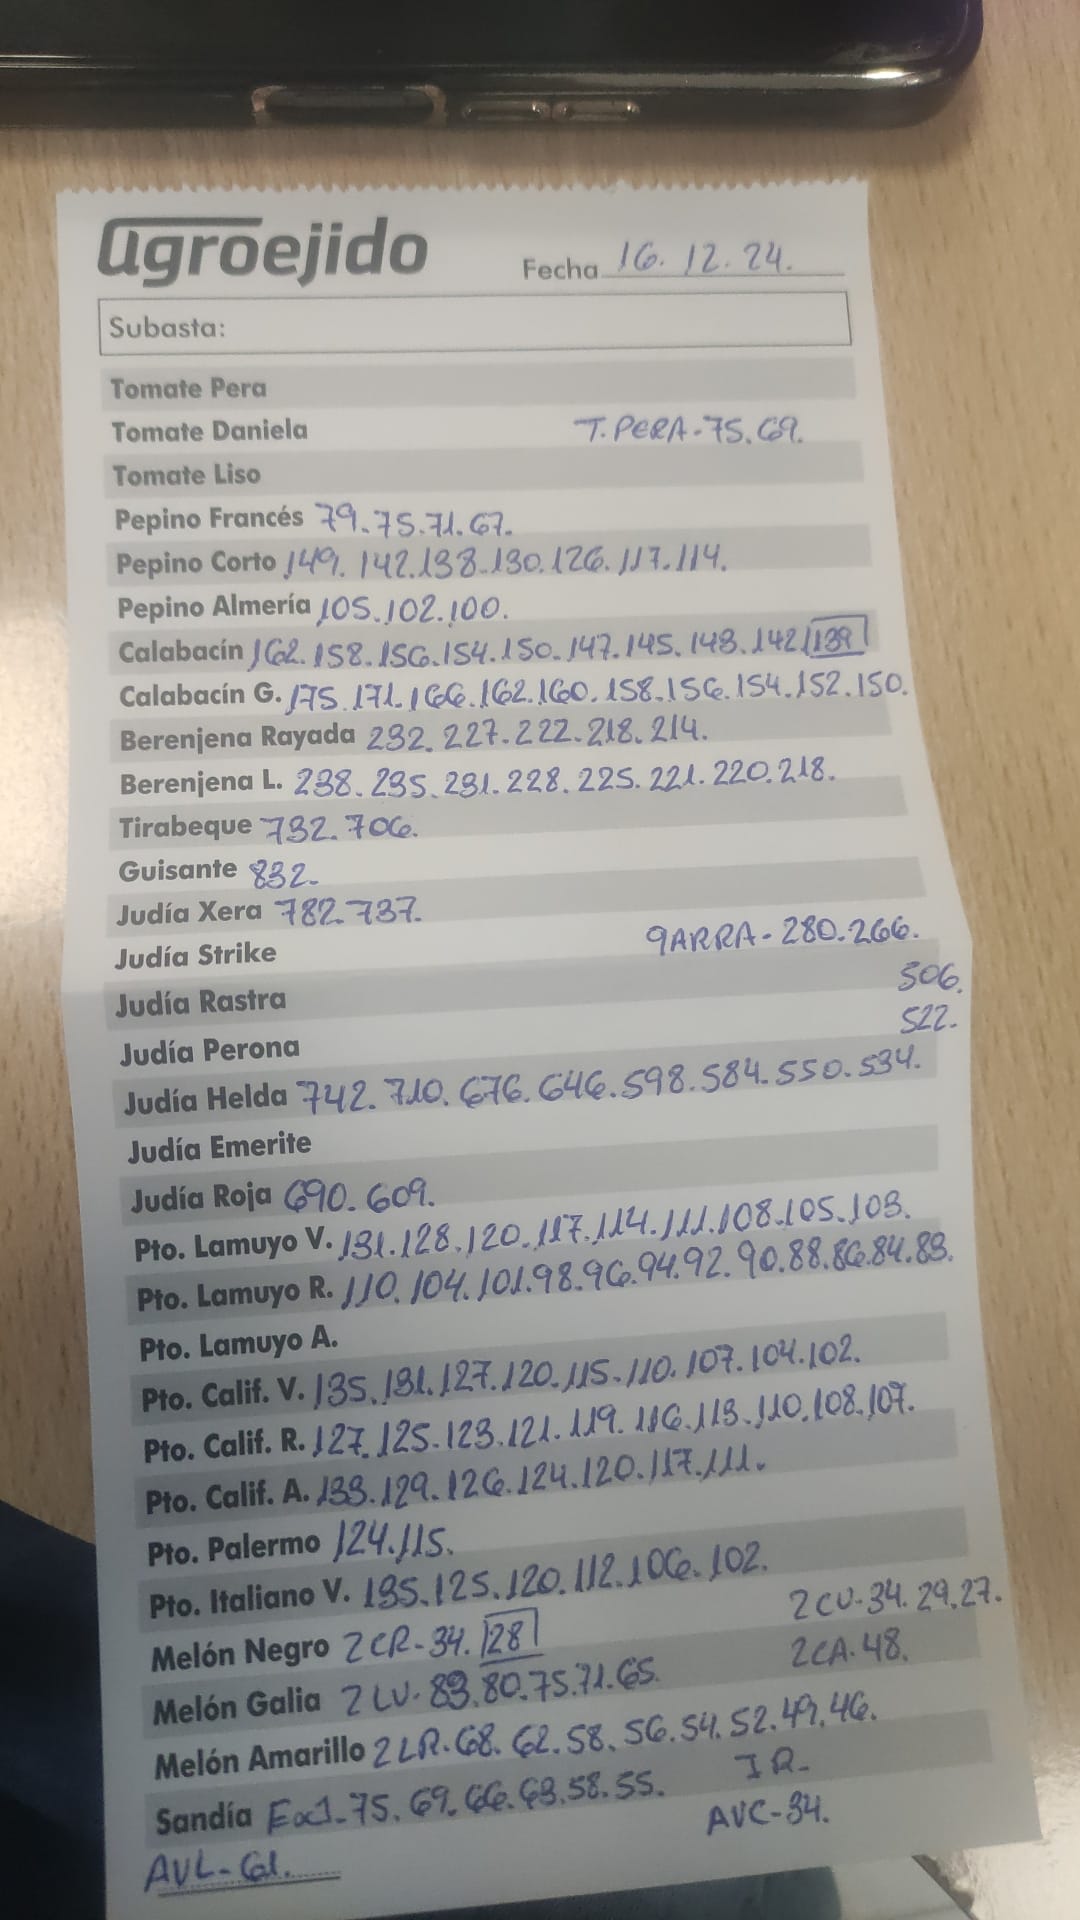 agroejido
Fecha 16.12.24.
Subasta:
Tomate Pera
Tomate Daniela T.PERA-75.69.
Tomate Liso
Pepino Francés 79.75.71.67.
Pepino Corto 149.142.138.130.126.117.114.
Pepino Almería 105.102.100.
Calabacín 162.158.156.154.150.147.145.143.142/139
Calabacín G. 175.171.166.162.160.158.156.154.152.150.
Berenjena Rayada 232.227.222.218.214.
Berenjena L. 238.235.231.228.225.221.220.218.
Tirabeque 732.706.
Guisante 832.
Judía Xera 782.737.
Judía Strike GARRA-280.266.
Judía Rastra 506.
Judía Perona 522.
Judía Helda 742.710.676.646.598.584.550.534.
Judía Emerite
Judía Roja 690.609.
Pto. Lamuyo V. 131.128.120.117.114.111.108.105.103.
Pto. Lamuyo R. 110.104.101.98.96.94.92.90.88.86.84.83.
Pto. Lamuyo A.
Pto. Calif. V. 135.131.127.120.115.110.107.104.102.
Pto. Calif. R. 127.125.123.121.119.116.113.110.108.107.
Pto. Calif. A. 133.129.126.124.120.117.111.
Pto. Palermo 124.115.
Pto. Italiano V. 135.125.120.112.106.102.
Melón Negro 2CR-34.28 2CV-34.29.27.
Melón Galia 2LV-83.80.75.71.65. 2CA-48.
Melón Amarillo 2LR-68.62.58.56.54.52.49.46.
Sandía Ex1-75.69.66.63.58.55. IR-
AVL-61. AVC-34.